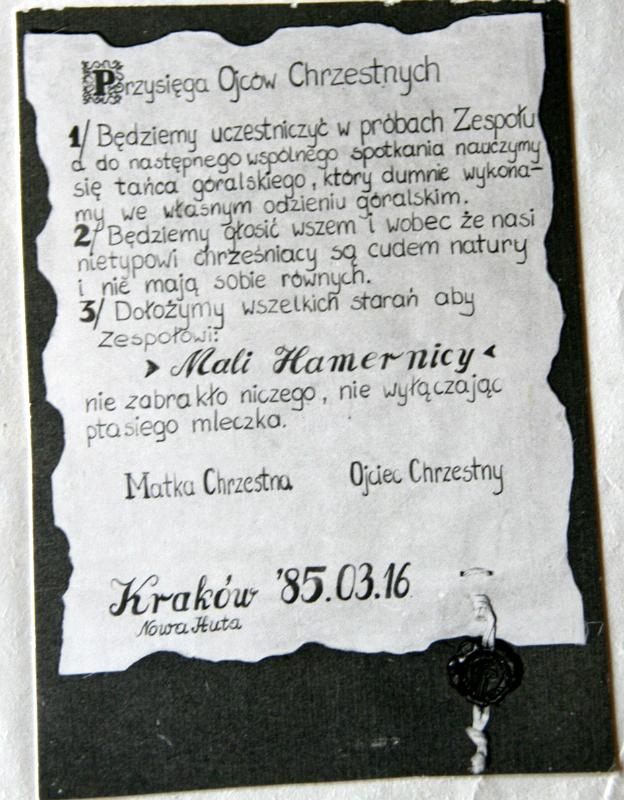 Przysięga Ojców Chrzestnych
1/ Będziemy uczestniczyć w próbach Zespołu
a do następnego wspólnego spotkania nauczymy
się tańca góralskiego, który dumnie wykona-
my we własnym odzieniu góralskim.
2/ Będziemy głosić wszem i wobec że nasi
nietypowi chrześniacy są cudem natury
i nie mają sobie równych.
3/ Dołożymy wszelkich starań aby
Zespołowi:
Mali Hamernicy
nie zabrakło niczego, nie wyłączając
ptasiego mleczka.
Matka Chrzestna Ojciec Chrzestny
Kraków '85.03.16
Nowa Huta